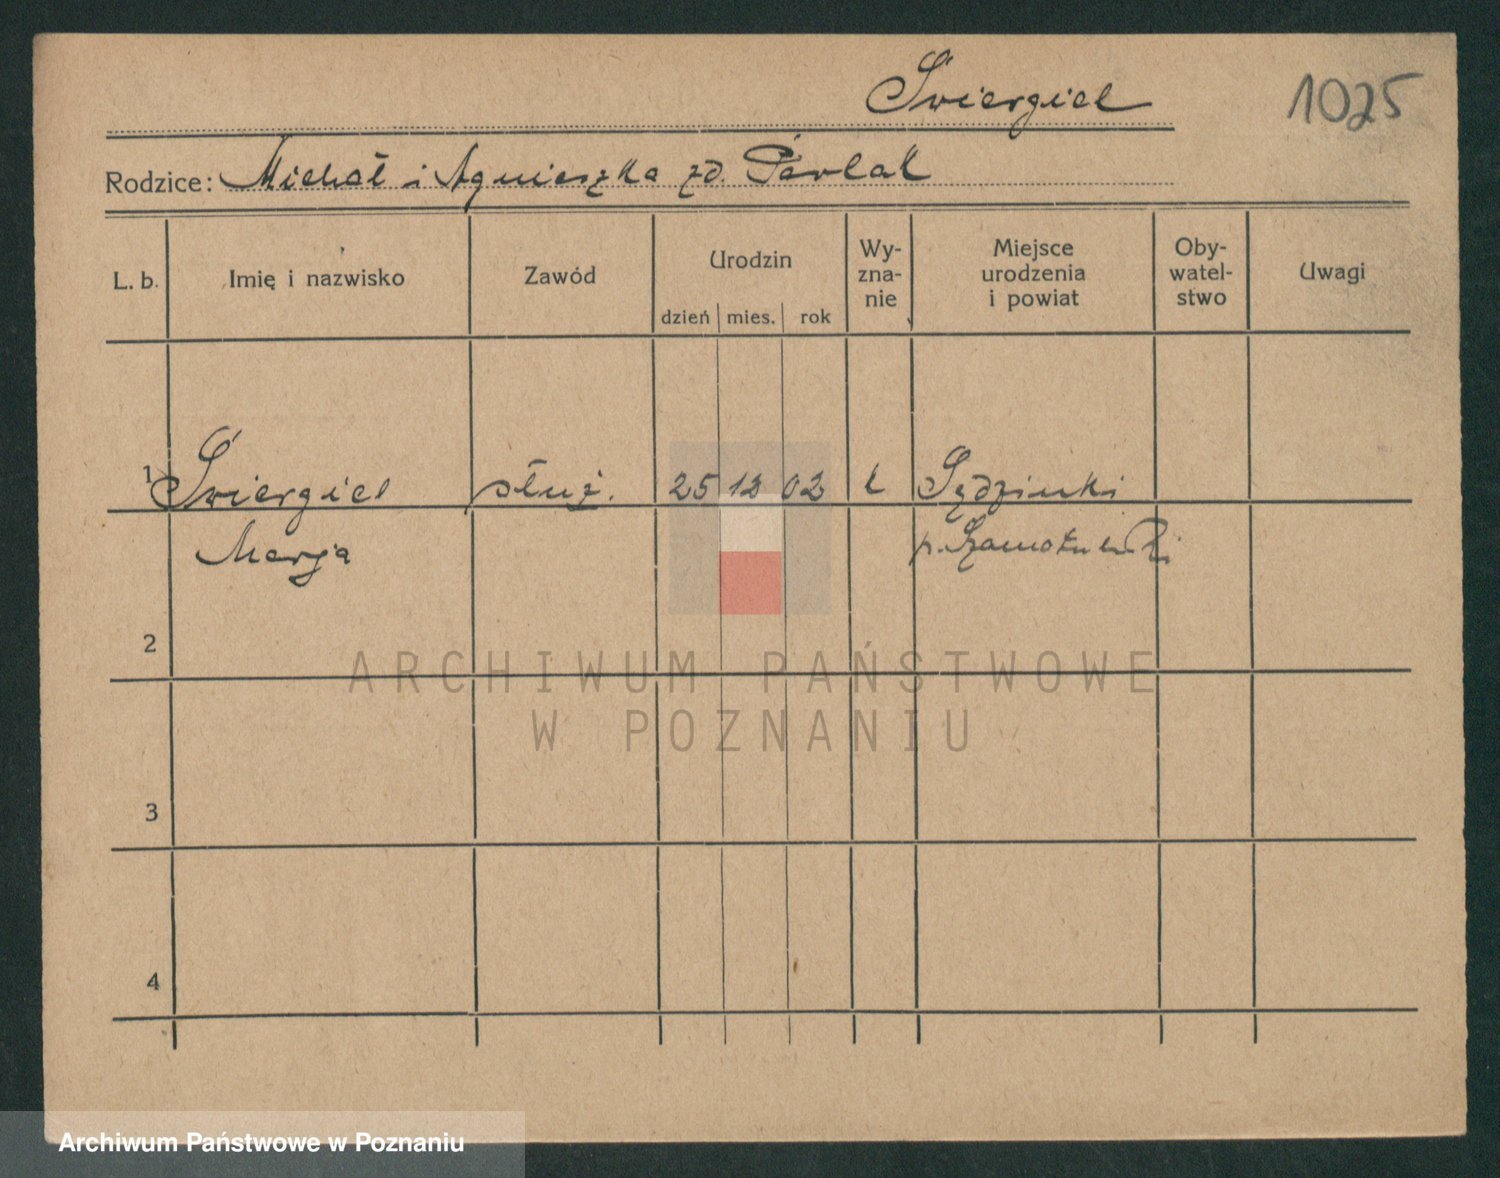 Świergiel
1025
Rodzice: Michał i Agnieszka zd. Pawlak
L. b. Imię i nazwisko Zawód Urodzin dzień mies. rok Wy-zna-nie Miejsce urodzenia i powiat Oby-watel-stwo Uwagi
1 Świergiel służ. 25 12 02 k Sędzinki
Marja p. Szamotulski
2
ARCHIWUM PAŃSTWOWE
W POZNANIU
3
4
Archiwum Państwowe w Poznaniu